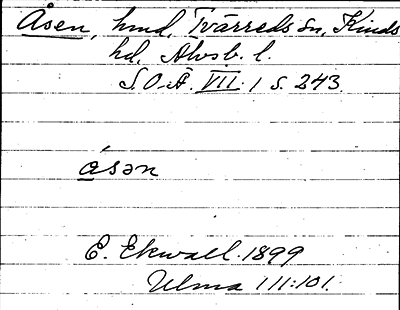 Åsen, hmd, Tvärreds sn, Kinds
hd, Älvsb. l.
S.O.Ä. VII:1 s. 243
åsən
E. Ekwall 1899
Ulma 111:101.